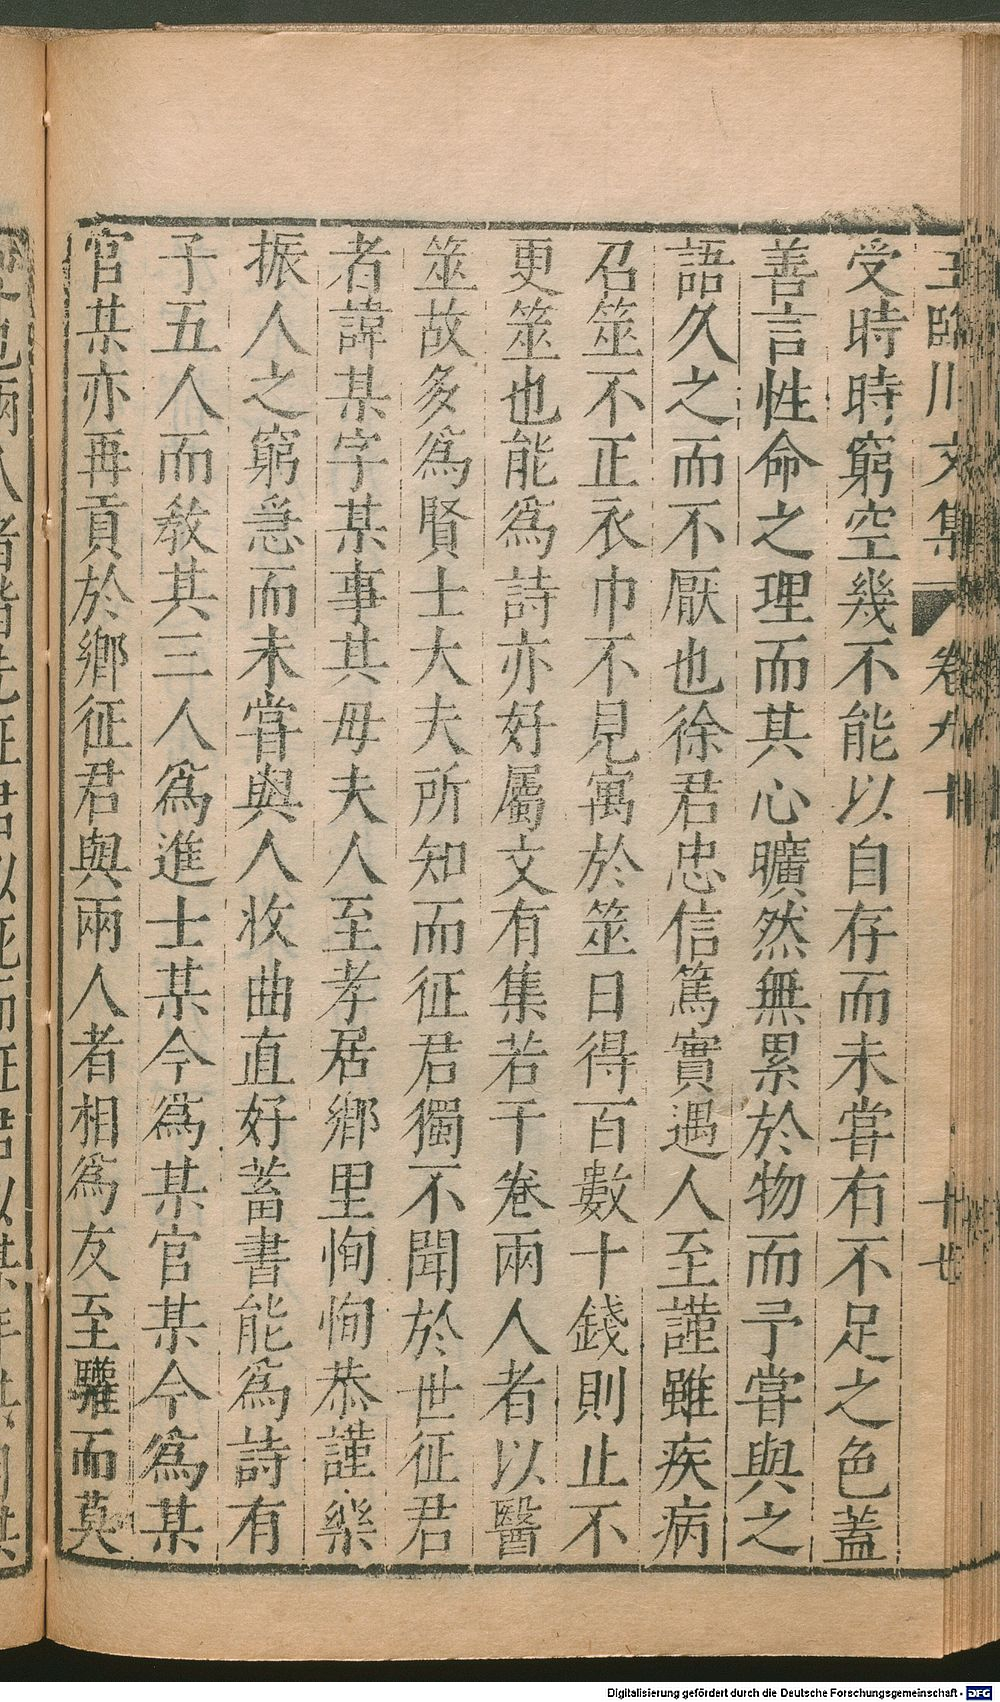 王臨川文集 卷九十 十七
受時時窮空幾不能以自存而未甞有不足之色蓋
善言性命之理而其心曠然無累於物而予甞與之
語久之而不厭也徐君忠信篤實遇人至謹雖疾病
召筮不正衣巾不見寓於筮日得百數十錢則止不
更筮也能爲詩亦好屬文有集若干卷兩人者以醫
筮故多爲賢士大夫所知而征君獨不聞於世征君
者諱某字某事其母夫人至孝居鄉里恂恂恭謹樂
振人之窮急而未甞與人收曲直好蓄書能爲詩有
子五人而敎其三人爲進士某今爲某官某今爲某
官某亦再貢於鄉征君與兩人者相爲友至驩而莫
Digitalisierung gefördert durch die Deutsche Forschungsgemeinschaft - DFG